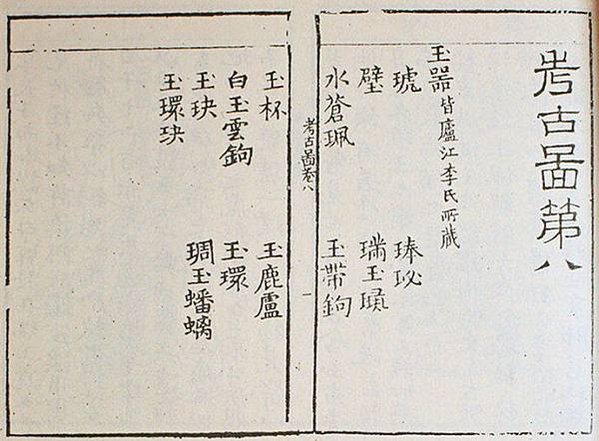 考古圖第八
玉器皆廬江李氏所藏
琥 琫珌
璧 玉
水蒼珮 玉帶鉤
考古圖卷八
一
玉杯 玉鹿盧
白玉雲鉤 玉環
玉玦 琱玉蟠螭
玉環玦